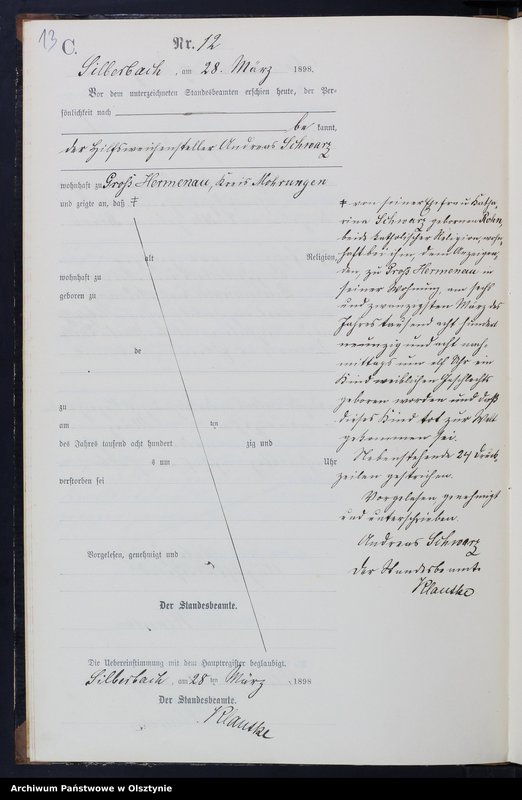 13
C.
Nr. 12
Silberbach, am 28. März 1898.
Vor dem unterzeichneten Standesbeamten erschien heute, der Per-
sönlichkeit nach
be kannt,
der Hilfsweichensteller Andreas Schwarz
wohnhaft zu Groß Hermenau, Kreis Mohrungen
und zeigte an, daß ‡
alt Religion,
wohnhaft zu
geboren zu
de
zu
am ten
des Jahres tausend acht hundert zig und
s um Uhr
verstorben sei
Vorgelesen, genehmigt und
Der Standesbeamte.
Die Uebereinstimmung mit dem Hauptregister beglaubigt.
Silberbach, am 28 ten März 1898
Der Standesbeamte.
Klautke
‡ von seiner Ehefrau Katha-
rina Schwarz gebornen Rohn,
beide katholischer Religion, wohn-
haft bei ihm, dem Anzeigen-
den, zu Groß Hermenau in
seiner Wohnung am sechs
und zwanzigsten März des
Jahres tausend acht hundert
neunzig und acht nach-
mittags um elf Uhr ein
Kind weiblichen Geschlechts
geboren worden und daß
dieses Kind tot zur Welt
gekommen sei.
Nebenstehende 24 Druck-
zeilen gestrichen.
Vorgelesen genehmigt
und unterschrieben.
Andreas Schwarz
Der Standesbeamte
Klautke
Archiwum Państwowe w Olsztynie